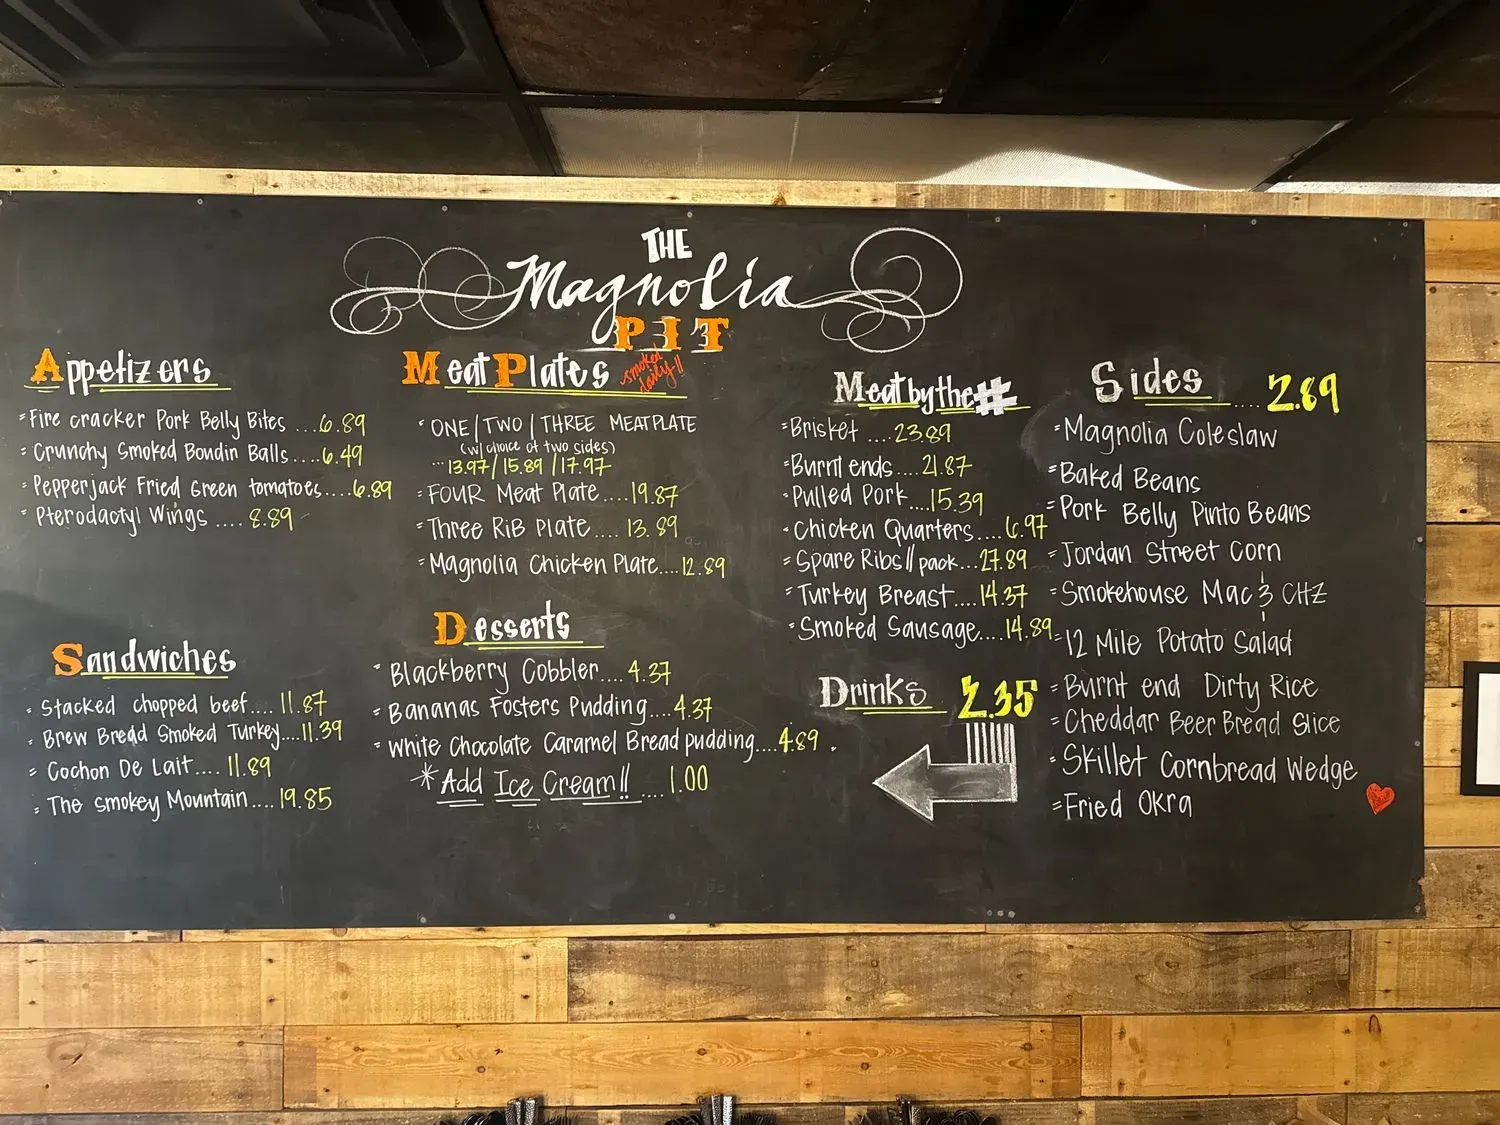 THE
Magnolia
PIT
Appetizers
Fire cracker Pork Belly Bites ...6.89
Crunchy Smoked Boudin Balls....6.49
Pepperjack Fried Green tomatoes....6.89
Pterodactyl Wings ....8.89
Sandwiches
Stacked chopped beef....11.87
Brew Bread Smoked Turkey....11.39
Cochon De Lait....11.89
The Smokey Mountain....19.85
Meat Plates smoked daily!!
ONE/TWO/THREE MEAT PLATE
(w/choice of two sides)
...13.97/15.89/17.97
FOUR Meat Plate....19.87
Three Rib Plate....13.89
Magnolia Chicken Plate....12.89
Desserts
Blackberry Cobbler....4.37
Bananas Fosters Pudding....4.37
White Chocolate Caramel Bread pudding....4.89
*Add Ice Cream!! ....1.00
Meat by the #
Brisket ....23.89
Burnt ends....21.87
Pulled Pork....15.39
Chicken Quarters....6.97
Spare Ribs//pack...27.89
Turkey Breast....14.37
Smoked Sausage....14.89
Drinks 2.35
Sides ....2.89
Magnolia Coleslaw
Baked Beans
Pork Belly Pinto Beans
Jordan Street Corn
Smokehouse Mac & CHZ
12 Mile Potato Salad
Burnt end Dirty Rice
Cheddar Beer Bread Slice
Skillet Cornbread Wedge
Fried Okra